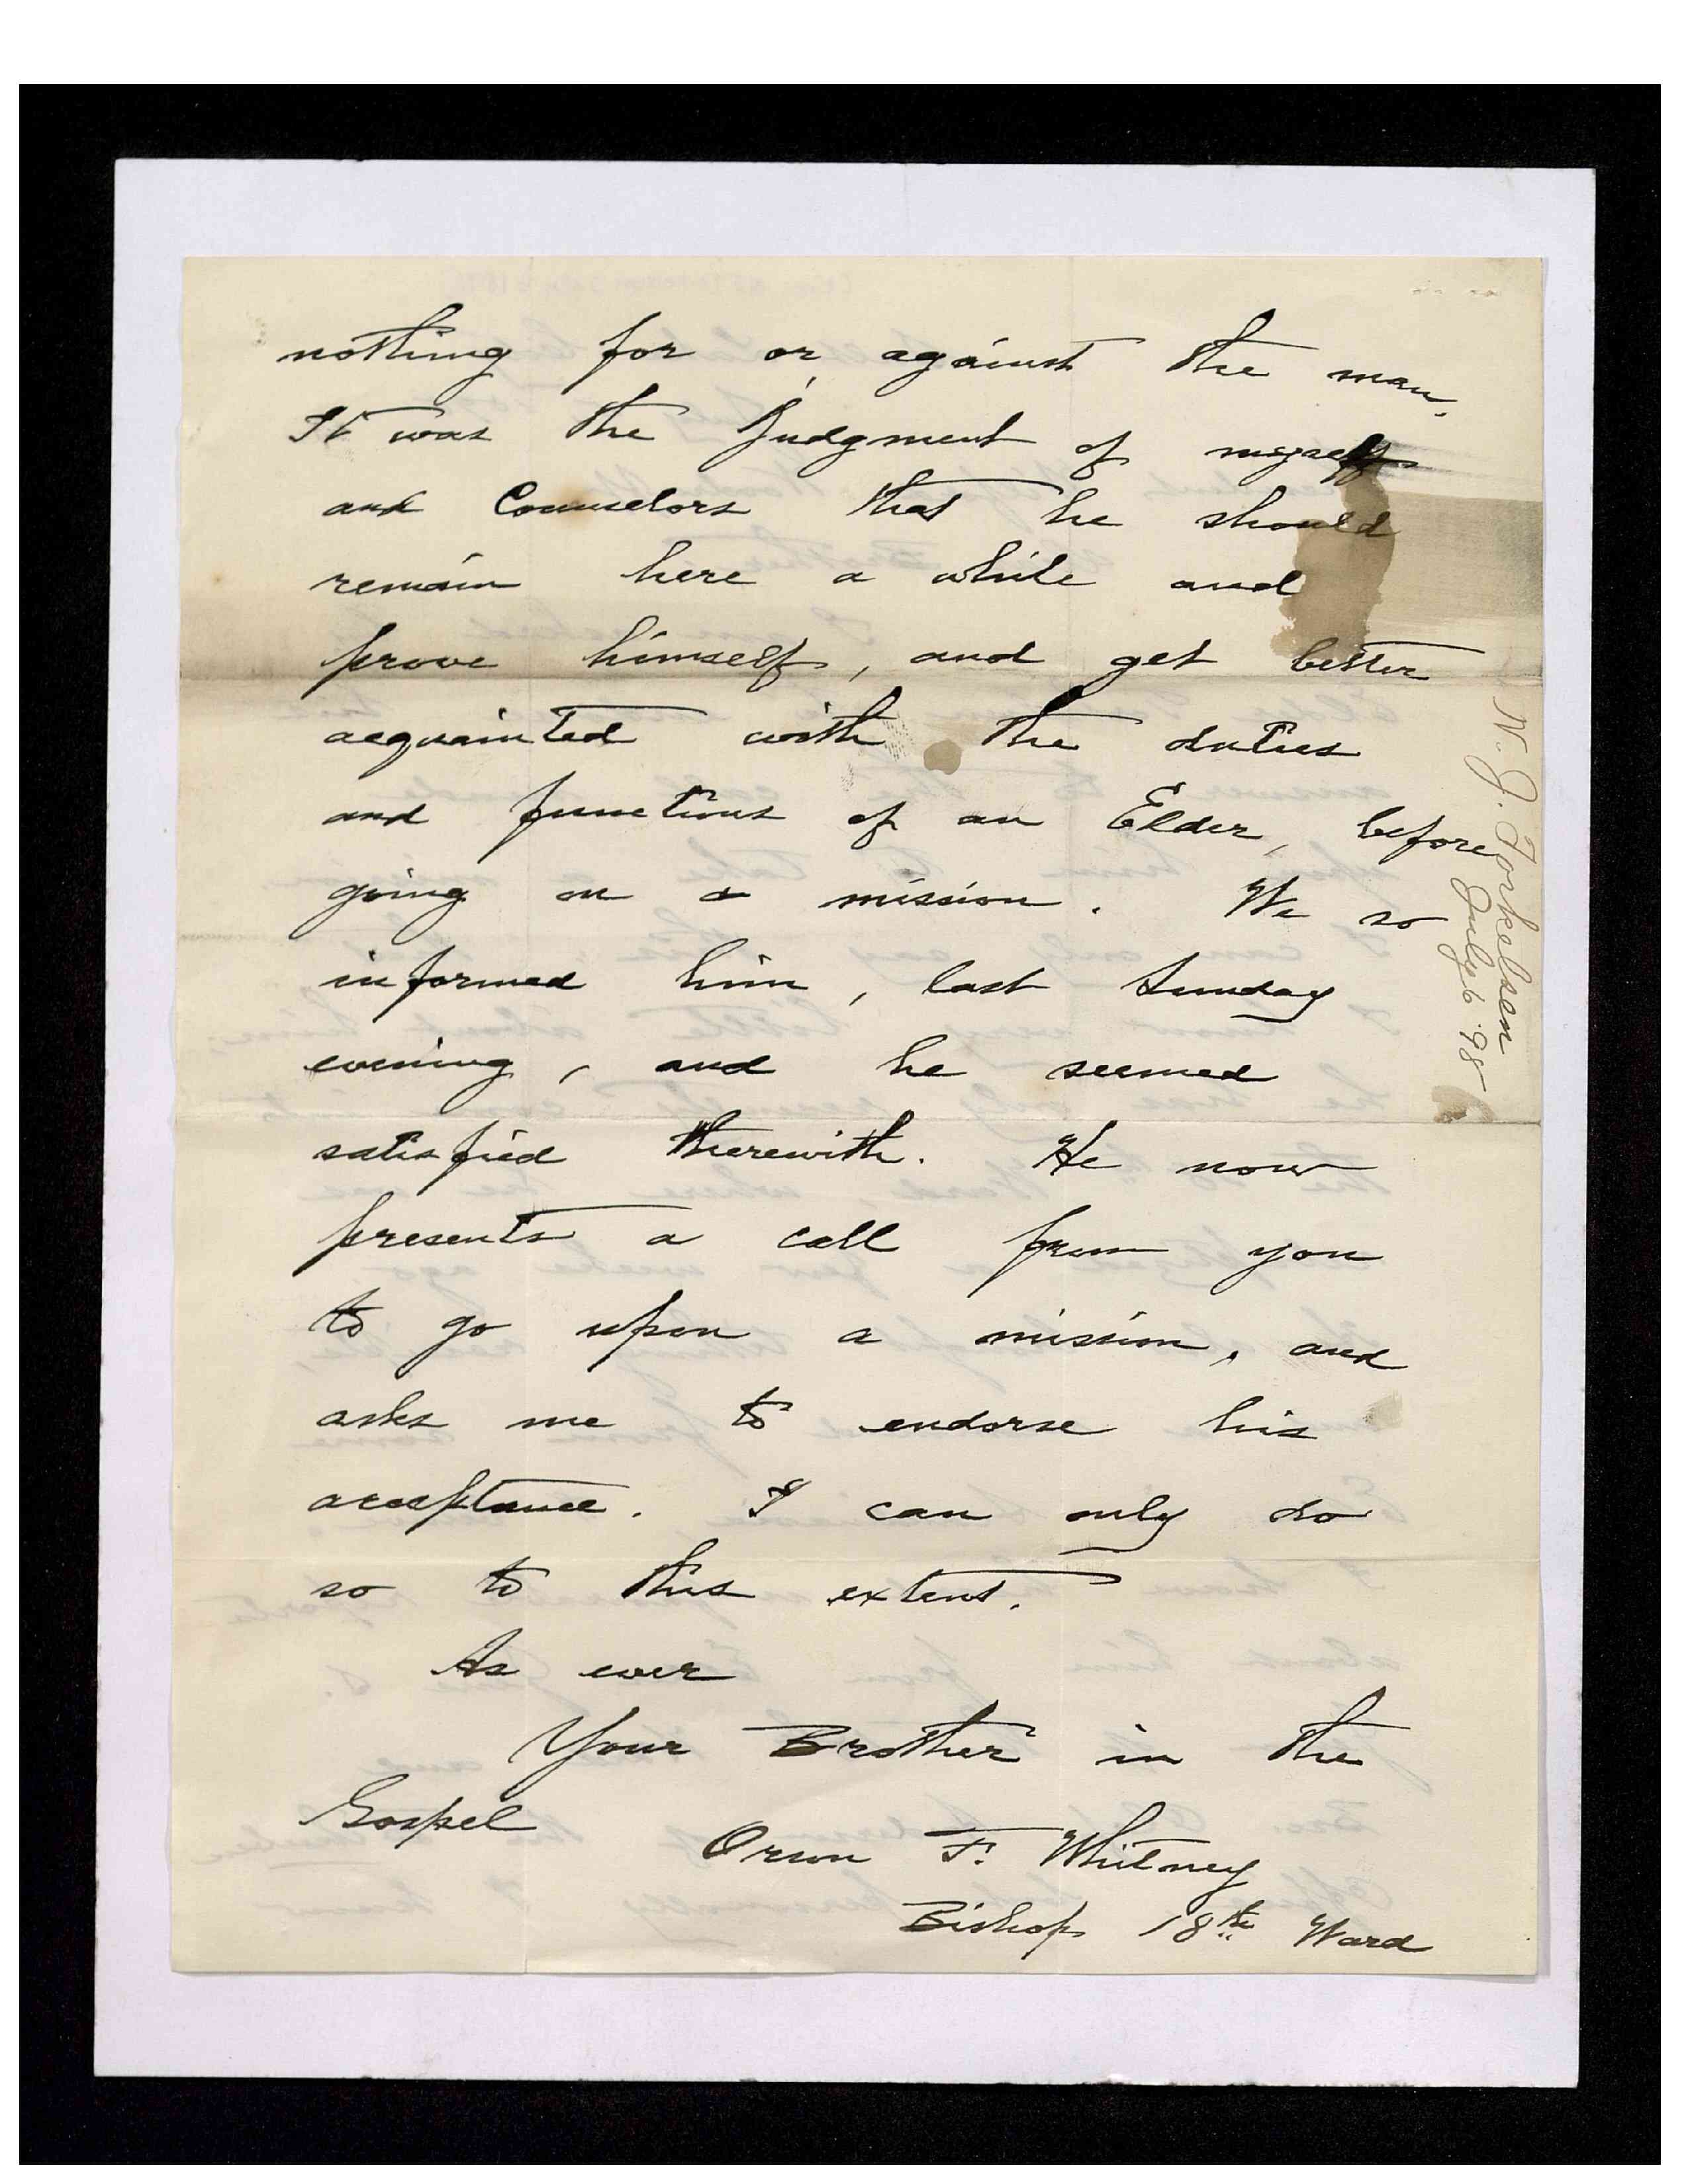 nothing for or against the man.
It was the judgment of myself
and Counselors that he should
remain here a while and
prove himself, and get better
acquainted with the duties
and functions of an Elder, before
going on a mission. We so
informed him, last Sunday
evening, and he seemed
satisfied therewith. He now
presents a call from you
to go upon a mission, and
asks me to endorse his
acceptance. I can only do
so to this extent.
As ever
Your Brother in the
Gospel
Orson F. Whitney
Bishop 18th Ward
N. J. Torkelsen
July 6 '98